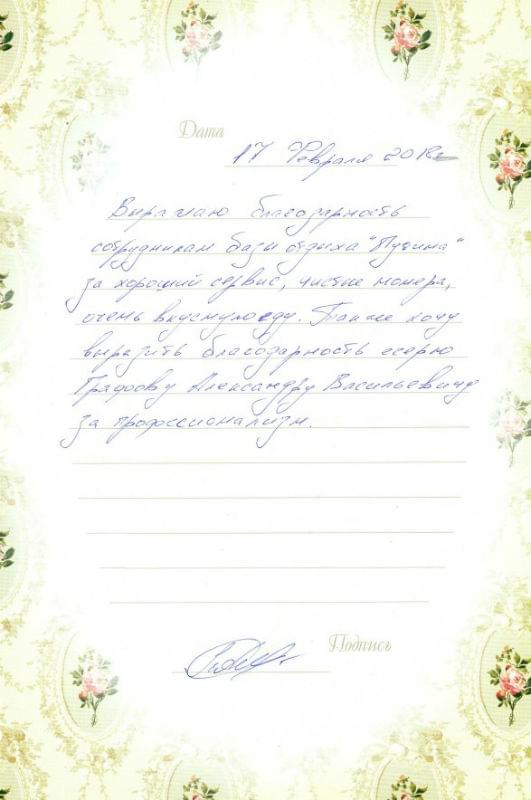 Дата
17 Февраля 2018г
Выражаю благодарность
сотрудникам базы отдыха "Пучина"
за хороший сервис, чистые номера,
очень вкусную еду. Также хочу
выразить благодарность егерю
Александру Васильевичу
за профессионализм.
Подпись